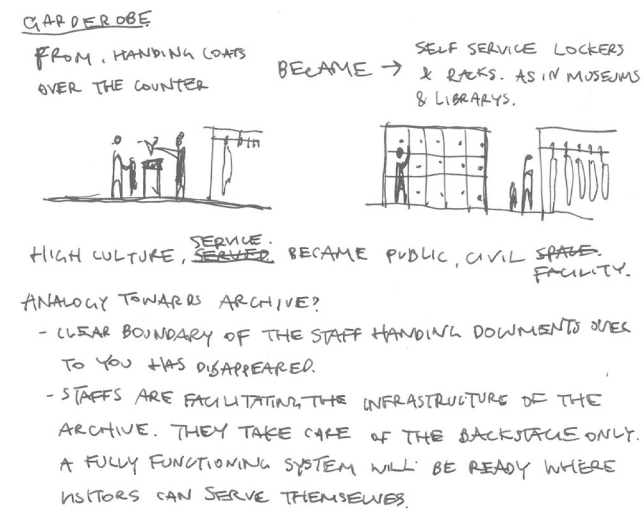 GARDEROBE
FROM, HANDING COATS
OVER THE COUNTER
BECAME →
SELF SERVICE LOCKERS
& RACKS. AS IN MUSEUMS
& LIBRARYS.
SERVICE.
HIGH CULTURE, SERVED BECAME PUBLIC, CIVIL SPACE.
FACILITY.
ANALOGY TOWARDS ARCHIVE?
- CLEAR BOUNDARY OF THE STAFF HANDING DOCUMENTS OVER
TO YOU HAS DISAPPEARED.
- STAFFS ARE FACILITATING THE INFRASTRUCTURE OF THE
ARCHIVE. THEY TAKE CARE OF THE BACKSTAGE ONLY.
A FULLY FUNCTIONING SYSTEM WILL BE READY WHERE
VISITORS CAN SERVE THEMSELVES.